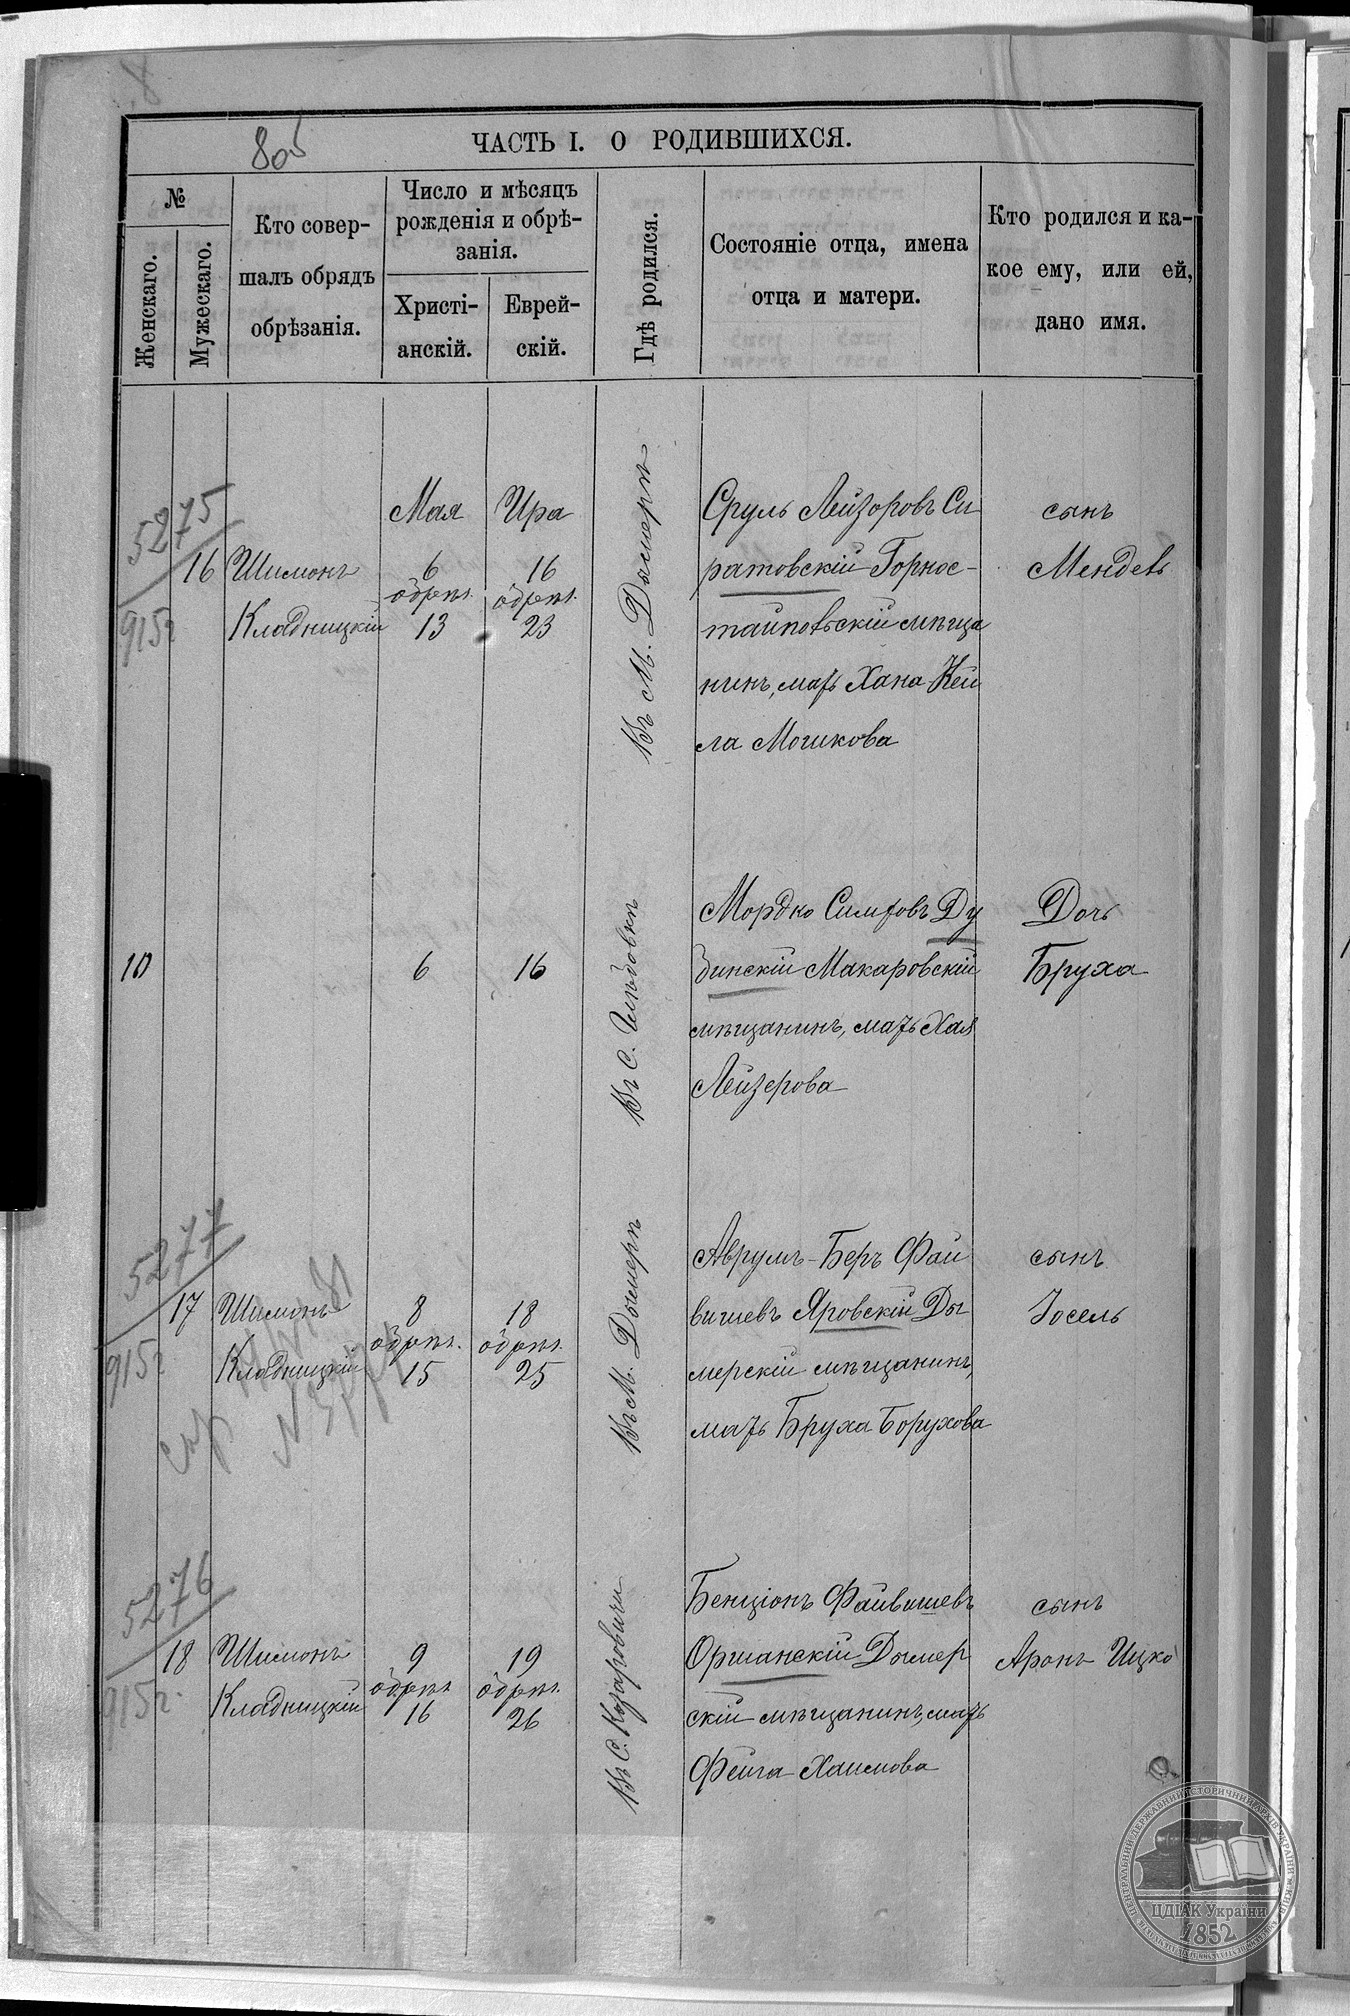 8
805
ЧАСТЬ I. О РОДИВШИХСЯ.
№
Женскаго.
Мужескаго.
Кто совер-
шалъ обрядъ
обрѣзанія.
Число и мѣсяцъ
рожденія и обрѣ-
занія.
Христі-
анскій.
Еврей-
скій.
Гдѣ родился.
Состояніе отца, имена
отца и матери.
Кто родился и ка-
кое ему, или ей,
дано имя.
5275
915г
16
Шимонъ
Кладницкій
Мая
6
обрѣз.
13
Ира
16
обрѣз.
23
Въ М. Дымерѣ
Сруль Лейзоровъ Си
ратовскій Горнос-
тайповьскій мѣща
нинъ, мать Хана Кей
ла Мошкова
сынъ
Мендель
10
6
16
Въ С.
Мордко Симховъ Ду
бинскій Макаровскій
мѣщанинъ, мать Хая
Лейзерова
Дочь
Бруха
5277
915г
17
Шимонъ
Кладницкій
8
обрѣз.
15
18
обрѣз.
25
Въ М. Дымерѣ
Аврумъ-Беръ Фай
вишевъ Яровскій Ды
мерскій мѣщанинъ,
мать Бруха Борухова
сынъ
Іосель
5276
915г.
18
Шимонъ
Кладницкій
9
обрѣз.
16
19
обрѣз.
26
Въ С. Козаровичи
Бенціонъ Файвишевъ
Оршанскій Дымер
скій мѣщанинъ, мать
Фейга Хаимова
сынъ
Аронъ Ицко
ЦЕНТРАЛЬНИЙ ДЕРЖАВНИЙ ІСТОРИЧНИЙ АРХІВ УКРАЇНИ м. КИЇВ
ЦДІАК України
1852